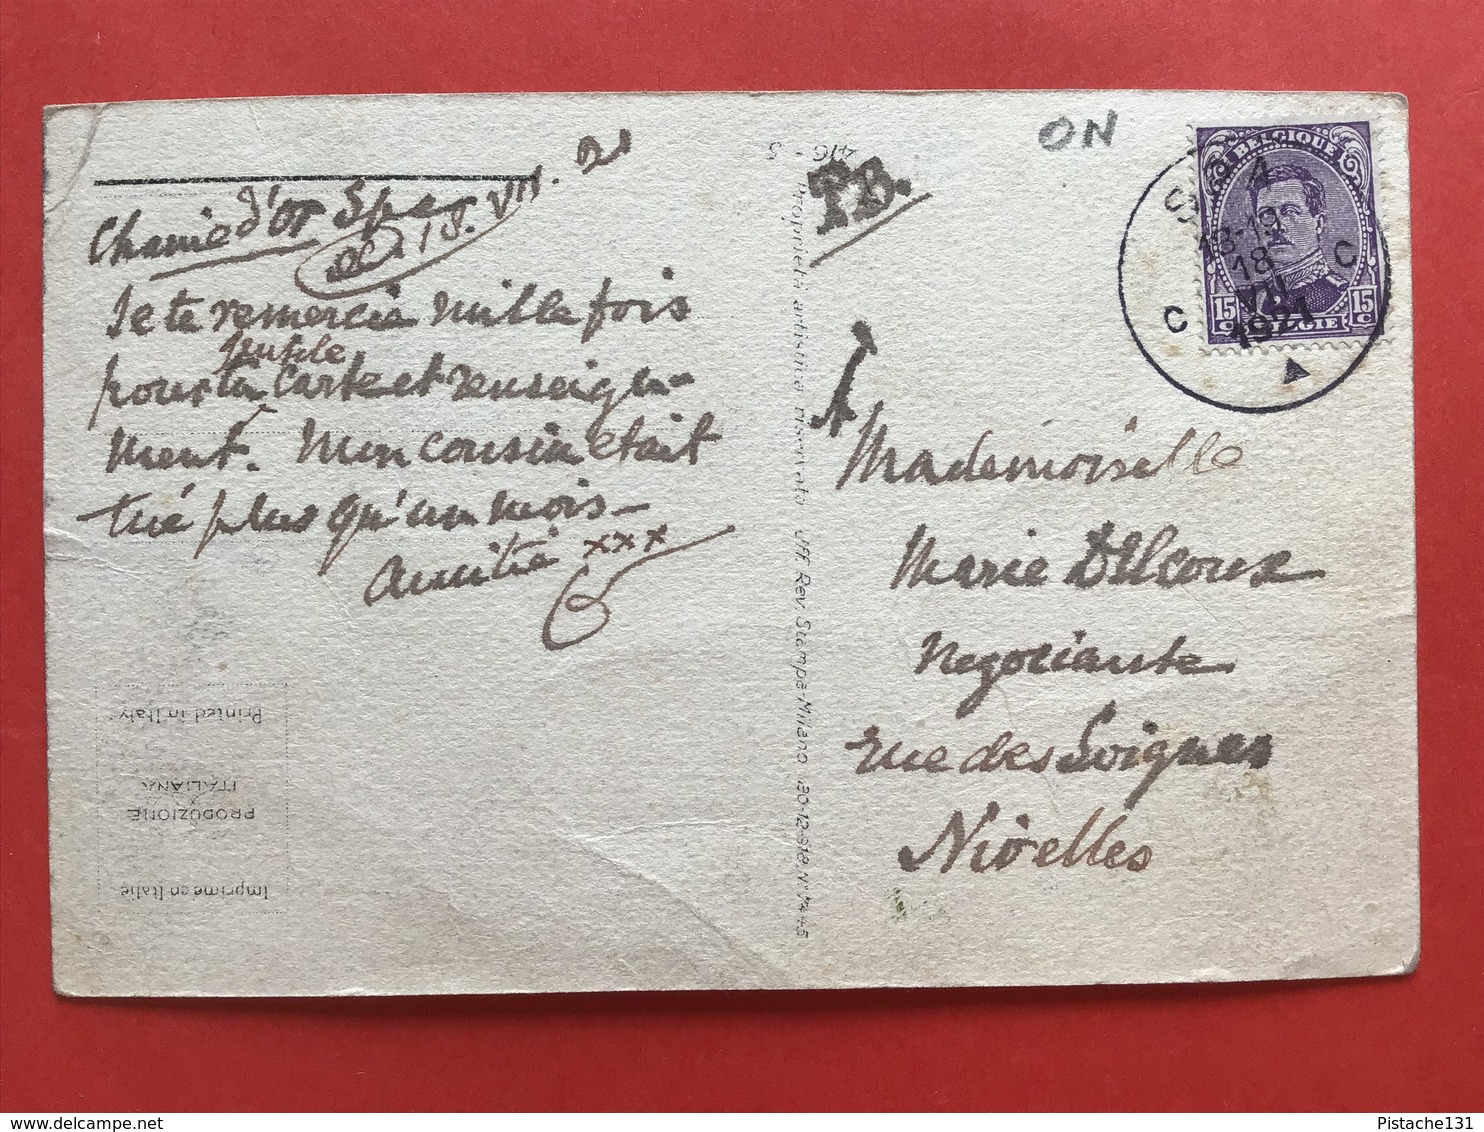 Chemin d'or Spa
le 18. VII. 21
Je te remercie mille fois
pour ta jolie carte et renseigne-
ment. Mon cousin était
tué plus qu'un mois –
Amitié xxx
Printed in Italy
PRODUZIONE
ITALIANA
Imprimé en Italie
416 - 5
Proprietà artistica riservata Uff. Rev. Stampa-Milano 30-12-918 N° 7445
T.B.
ON
BELGIQUE
15 C 15 C
BELGIE
SPA
18-19
18
VII
1921
C C
A
Mademoiselle
Marie Delcoux
Negociante
rue des Soignes
Nivelles
Pistache131